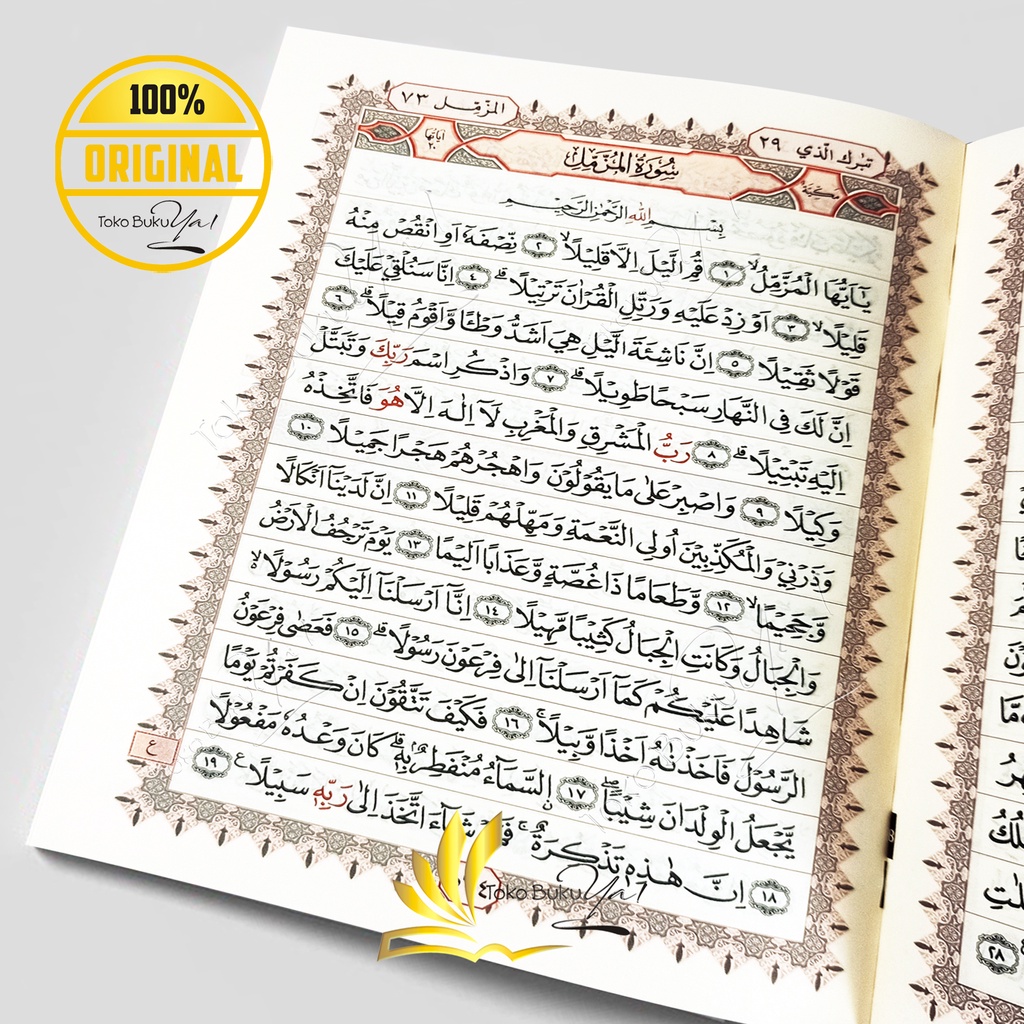 100%
ORIGINAL
Toko Buku Ya!
المزمل ٧٣
تبرك الذي ٢٩
اٰيَاتُهَا ٢٠
سُوْرَةُ الْمُزَّمِّلِ
مَكِّيَّة
بِسْمِ اللّٰهِ الرَّحْمٰنِ الرَّحِيْمِ
يٰٓاَيُّهَا الْمُزَّمِّلُۙ ١ قُمِ الَّيْلَ اِلَّا قَلِيْلًاۙ ٢ نِّصْفَهٗٓ اَوِ انْقُصْ مِنْهُ
قَلِيْلًاۙ ٣ اَوْ زِدْ عَلَيْهِ وَرَتِّلِ الْقُرْاٰنَ تَرْتِيْلًاۗ ٤ اِنَّا سَنُلْقِيْ عَلَيْكَ
قَوْلًا ثَقِيْلًا ٥ اِنَّ نَاشِئَةَ الَّيْلِ هِيَ اَشَدُّ وَطْـًٔا وَّاَقْوَمُ قِيْلًاۗ ٦
اِنَّ لَكَ فِى النَّهَارِ سَبْحًا طَوِيْلًاۗ ٧ وَاذْكُرِ اسْمَ رَبِّكَ وَتَبَتَّلْ
اِلَيْهِ تَبْتِيْلًاۗ ٨ رَبُّ الْمَشْرِقِ وَالْمَغْرِبِ لَآ اِلٰهَ اِلَّا هُوَ فَاتَّخِذْهُ
وَكِيْلًا ٩ وَاصْبِرْ عَلٰى مَا يَقُوْلُوْنَ وَاهْجُرْهُمْ هَجْرًا جَمِيْلًا ١٠
وَذَرْنِيْ وَالْمُكَذِّبِيْنَ اُولِى النَّعْمَةِ وَمَهِّلْهُمْ قَلِيْلًا ١١ اِنَّ لَدَيْنَآ اَنْكَالًا
وَّجَحِيْمًاۙ ١٢ وَّطَعَامًا ذَا غُصَّةٍ وَّعَذَابًا اَلِيْمًا ١٣ يَوْمَ تَرْجُفُ الْاَرْضُ
وَالْجِبَالُ وَكَانَتِ الْجِبَالُ كَثِيْبًا مَّهِيْلًا ١٤ اِنَّآ اَرْسَلْنَآ اِلَيْكُمْ رَسُوْلًاۙ
شَاهِدًا عَلَيْكُمْ كَمَآ اَرْسَلْنَآ اِلٰى فِرْعَوْنَ رَسُوْلًاۗ ١٥ فَعَصٰى فِرْعَوْنُ
الرَّسُوْلَ فَاَخَذْنٰهُ اَخْذًا وَّبِيْلًاۚ ١٦ فَكَيْفَ تَتَّقُوْنَ اِنْ كَفَرْتُمْ يَوْمًا
يَّجْعَلُ الْوِلْدَانَ شِيْبًاۖ ١٧ ۨالسَّمَاۤءُ مُنْفَطِرٌۢ بِهٖۗ كَانَ وَعْدُهٗ مَفْعُوْلًا
١٨ اِنَّ هٰذِهٖ تَذْكِرَةٌۚ فَمَنْ شَاۤءَ اتَّخَذَ اِلٰى رَبِّهٖ سَبِيْلًاࣖ ١٩
ع
Toko Buku Ya!
٢٨